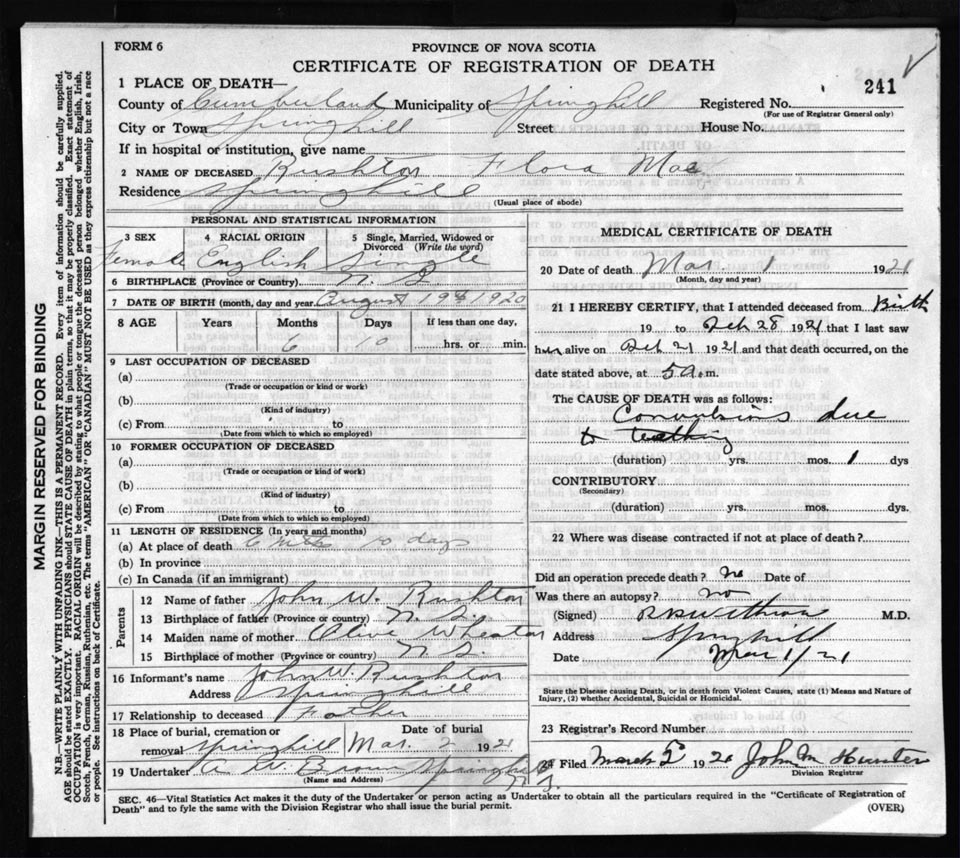 FORM 6
PROVINCE OF NOVA SCOTIA
CERTIFICATE OF REGISTRATION OF DEATH
241
1 PLACE OF DEATH—
County of Cumberland Municipality of Springhill Registered No.
(For use of Registrar General only)
City or Town Springhill Street House No.
If in hospital or institution, give name
2 NAME OF DECEASED Rushton Flora Mae
Residence Springhill
(Usual place of abode)
PERSONAL AND STATISTICAL INFORMATION
3 SEX 4 RACIAL ORIGIN 5 Single, Married, Widowed or Divorced (Write the word)
Female English Single
6 BIRTHPLACE (Province or Country)
7 DATE OF BIRTH (month, day and year) August 19th 1920
8 AGE Years Months Days If less than one day,
6 10 hrs. or min.
9 LAST OCCUPATION OF DECEASED
(a)
(Trade or occupation or kind of work)
(b)
(Kind of industry)
(c) From to
(Date from which to which so employed)
10 FORMER OCCUPATION OF DECEASED
(a)
(Trade or occupation or kind of work)
(b)
(Kind of industry)
(c) From to
(Date from which to which so employed)
11 LENGTH OF RESIDENCE (In years and months)
(a) At place of death 6 mths 10 days
(b) In province
(c) In Canada (if an immigrant)
Parents
12 Name of father John W. Rushton
13 Birthplace of father (Province or country) N. S.
14 Maiden name of mother Olive Wheaton
15 Birthplace of mother (Province or country) N S.
16 Informant's name John W. Rushton
Address Springhill
17 Relationship to deceased Father
18 Place of burial, cremation or removal Springhill Date of burial Mar. 2 1921
19 Undertaker A. W. Brown Springhill
(Name and Address) N. S.
MEDICAL CERTIFICATE OF DEATH
20 Date of death Mar. 1 1921
(Month, day and year)
21 I HEREBY CERTIFY, that I attended deceased from Birth
19 to Feb 28 1921 that I last saw
her alive on 1921 and that death occurred, on the
date stated above, at 5 a.m.
The CAUSE OF DEATH was as follows:
Convulsions due
to teething
(duration) yrs. mos. 1 dys
CONTRIBUTORY
(Secondary)
(duration) yrs. mos. dys.
22 Where was disease contracted if not at place of death?
Did an operation precede death? no Date of
Was there an autopsy? no
(Signed) M.D.
Address Springhill
Date Mar 1/21
State the Disease causing Death, or in death from Violent Causes, state (1) Means and Nature of Injury, (2) whether Accidental, Suicidal or Homicidal.
23 Registrar's Record Number
24 Filed March 192 John M Hunter
Division Registrar
SEC. 46—Vital Statistics Act makes it the duty of the Undertaker or person acting as Undertaker to obtain all the particulars required in the "Certificate of Registration of
Death" and to fyle the same with the Division Registrar who shall issue the burial permit. (OVER)
MARGIN RESERVED FOR BINDING
N.B.—WRITE PLAINLY WITH UNFADING INK—THIS IS A PERMANENT RECORD. Every item of information should be carefully supplied.
AGE should be stated EXACTLY. PHYSICIANS should STATE CAUSE OF DEATH in plain terms, so that it may be properly classified. Exact statement of
OCCUPATION is very important. RACIAL ORIGIN will be described by stating to what people or tongue the deceased person belonged whether English, Irish,
Scotch, French, German, Russian, Ruthenian, etc. The terms "AMERICAN" OR "CANADIAN" MUST NOT BE USED as they express citizenship but not a race
or people. See instructions on back of Certificate.